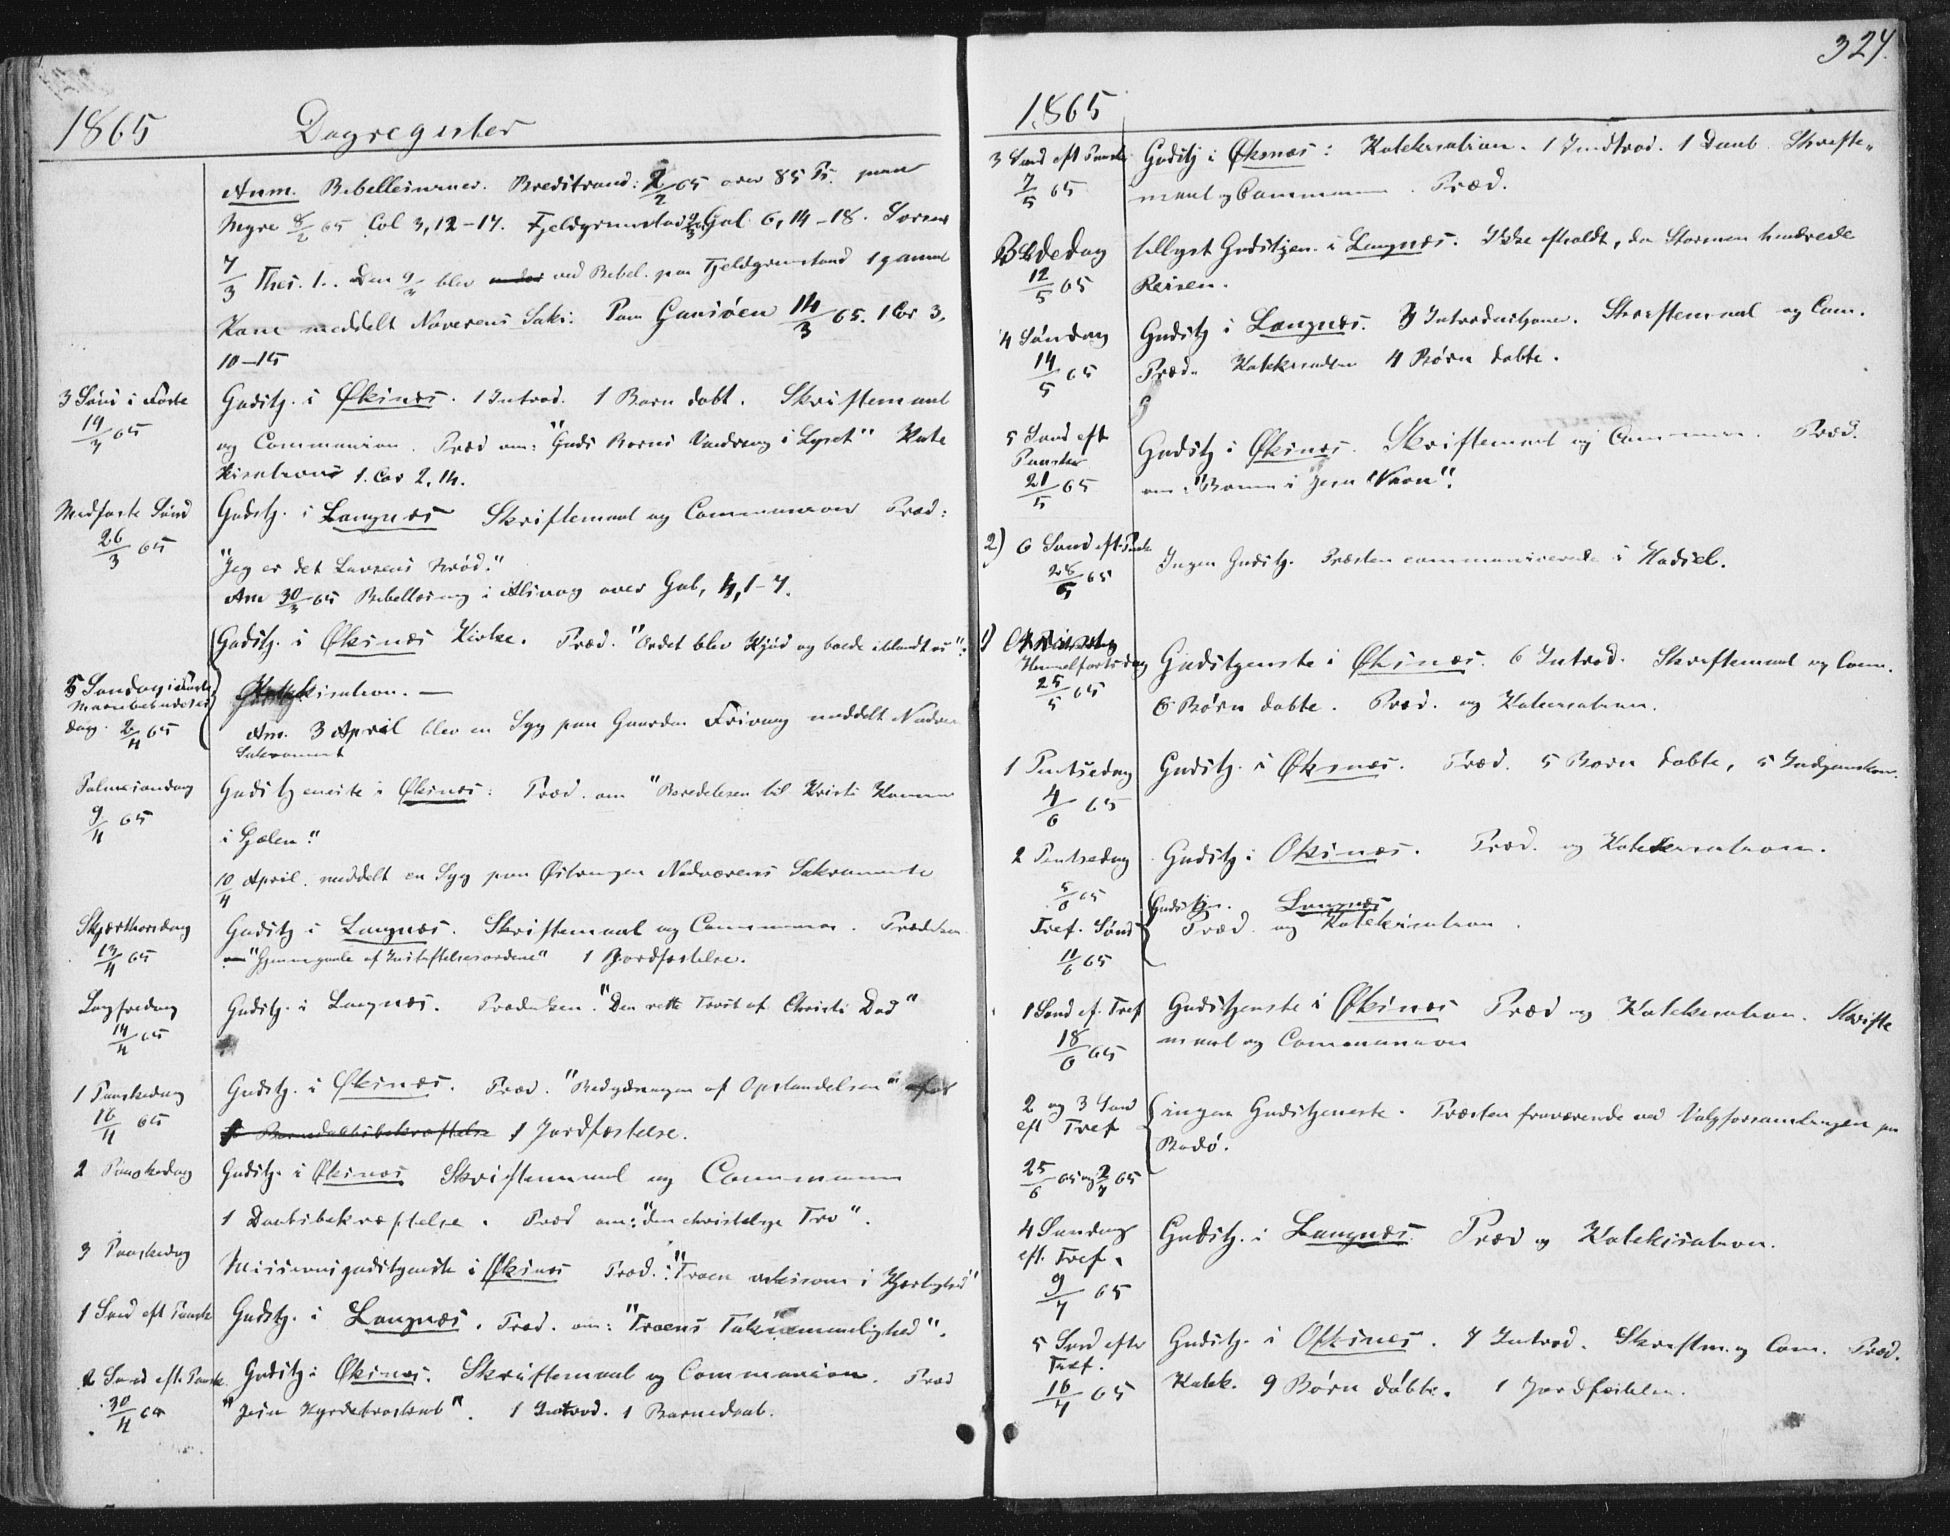 1865 Dagregister
Anm. Bibellæsninger. Breistrand: 2/2 65 over 85 Ps. paa
Myre 8/2 65 Col 3,12-17. Fjeldgrimstad 2/3 Gal. 6,14-18.
7/3 Thes. 1. Den 9/3 blev ved Bibel. paa Fjeldgrimstad 1 gammel
Kone meddelt Naverens Sakr. Paa Gaasøen 14/3 65. 1 Cor 3,
10-15
3 Sønd i Faste Gudstj. i Øksnes. 1 Introd. 1 Barn døbt. Skriftemaal
19/3 65 og Communion. Præd om: "Guds Børns Vandring i Lyset" Kate
kisations 1. Cor 2,14.
Midfaste Sønd Gudstj. i Langnes Skriftemaal og Communion Præd:
26/3 65 "Jeg er det Livsens Brød."
Anm 30/3 65 Bibellæsning i Alsvaag over Gal, 4,1-7.
Gudstj. i Øksnes Kirke. Præd. "Ordet blev Kjød og boede iblandt os":
5 Søndag i Faste
Mariæbebudelses Katekisation. —
dag. 2/4 65 Am. 3 April blev en Syg paa Gaarden Frivaag meddelt Nadver
Sakrament
Palmesøndag Gudstjeneste i Øksnes: Præd. om "Beredelsen til Kristi Komme
9/4 65 i Sjælen."
10/4 April. meddelt en Syg paa Nadverens Sakramente
Skjærthorsdag Gudstj i Langnes. Skriftemaal og Communion. Prædiken
13/4 65 "Gjennemgaale af Indstiftelsesordene" 1 Jordfæstelse.
Langfredag Gudstj. i Langnes. Prædiken. "Den rette Trøst af Christi Død"
14/4 65
1 Paaskedag Gudstj. i Øksnes. Præd. "Betydningen af Opstandelsen"
16/4 65 1 Barnedaabsbekræftelse 1 Jordfæstelse.
2 Paaskedag Gudstj. i Øksnes Skriftemaal og Communion
1 Daabsbekræftelse. Præd om: "den christelige Tro".
3 Paaskedag Missionsgudstjeneste i Øksnes Præd.: "Troen virksom i Kjærlighed"
1 Sønd eft Paaske Gudstj. i Langnes. Præd. om: "Troens Taknemmelighed".
2 Sønd eft. Paaske Gudstj i Øksnes. Skriftemaal og Communion. Præd
30/4 65 "Jesu Hyrdetroskab". 1 Introd. 1 Barnedaab.
324.
1865
3 Sønd eft Paaske Gudstj i Øksnes: Katekisation. 1 Introd. 1 Daab. Skrifte-
7/5 65 maal og Communion. Præd.
Bededag tillyst Gudstjen. i Langnes. Ikke afholdt, da Stormen hindrede
12/5 65 Reisen.
4 Søndag Gudstj i Langnes. 3 Introductioner. Skriftemaal og Com.
14/5 65 Præd. Katekisation 4 Børn døbte.
5 Sønd eft
Paaske Gudstj i Øksnes. Skriftemaal og Communion. Præd.
21/5 65 om: "Bønnen i Jesu Navn".
2) 6 Sønd eft. Paaske Ingen Gudstj. Præsten communicerede i Hadsel.
28/5 65
1) Christi
Himmelfartsdag Gudstjeneste i Øksnes. 6 Introd. Skriftemaal og Com.
25/5 65 6 Børn døbte. Præd. og Katekisation.
1 Pintsedag Gudstj. i Øksnes. Præd. 5 Børn døbte, 5 Indgangskoner.
4/6 65
2 Pintsedag Gudstj i Øksnes. Præd. og Katekisation.
5/6 65 Gudstjn. Langnes
Tref. Sønd Præd. og Katekisation.
11/6 65
1 Sønd ef. Tref Gudstjeneste i Øksnes Præd og Katekisation. Skrifte
18/6 65 maal og Communion
2 og 3 Sønd ingen Gudstjeneste. Præsten fraværende ved Valgforsamlingen paa
eft Tref Bodø.
25/6 65 og 2/7 65
4 Søndag Gudstj. i Langnes. Præd og Katekisation.
eft. Tref.
9/7 65
5 Sønd efter Gudstj. i Øksnes. 7 Introd. Skriftm. og Com. Præd.
Tref.
16/7 65 Katek. 9 Børn døbte. 1 Jordfæstelse.